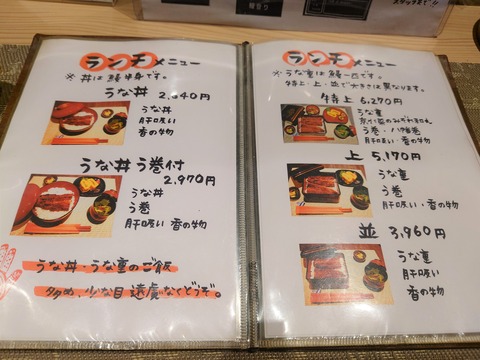 ランチメニュー
※ 丼は鰻半身です。
うな丼
2,640円
うな丼
肝吸い
香の物
うな丼 う巻付
2,970円
うな丼
う巻
肝吸い 香の物
うな丼・うな重のご飯
多め、少な目 遠慮なくどうぞ。
ランチメニュー
※うな重は鰻一匹です。
特上・上・並で大きさは異なります。
特上 6,270円
うな重
う巻・八幡巻
肝吸い・香の物
上 5,170円
うな重
う巻
肝吸い・香の物
並 3,960円
うな重
肝吸い
香の物